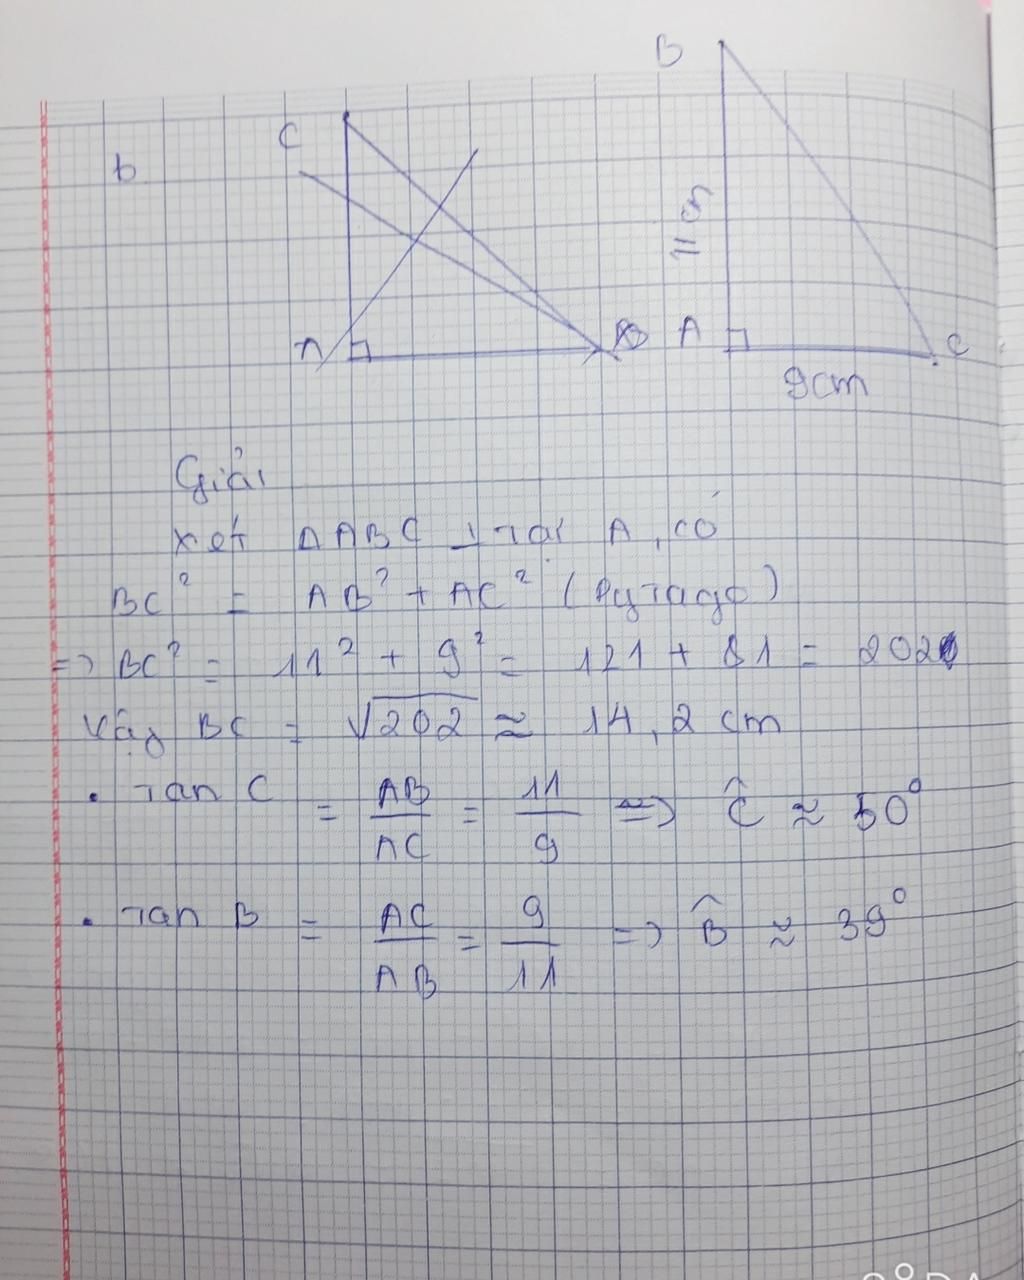 b
C
A
B
B
A
C
9cm
Giải
xét ΔABC ⊥ tại A, có
BC² = AB² + AC² (Pytago)
=> BC² = 11² + 9² = 121 + 81 = 202
Vậy BC = √202 ≈ 14,2 cm
• Tan C = AB/AC = 11/9 => Ĉ ≈ 50°
• Tan B = AC/AB = 9/11 => B̂ ≈ 39°